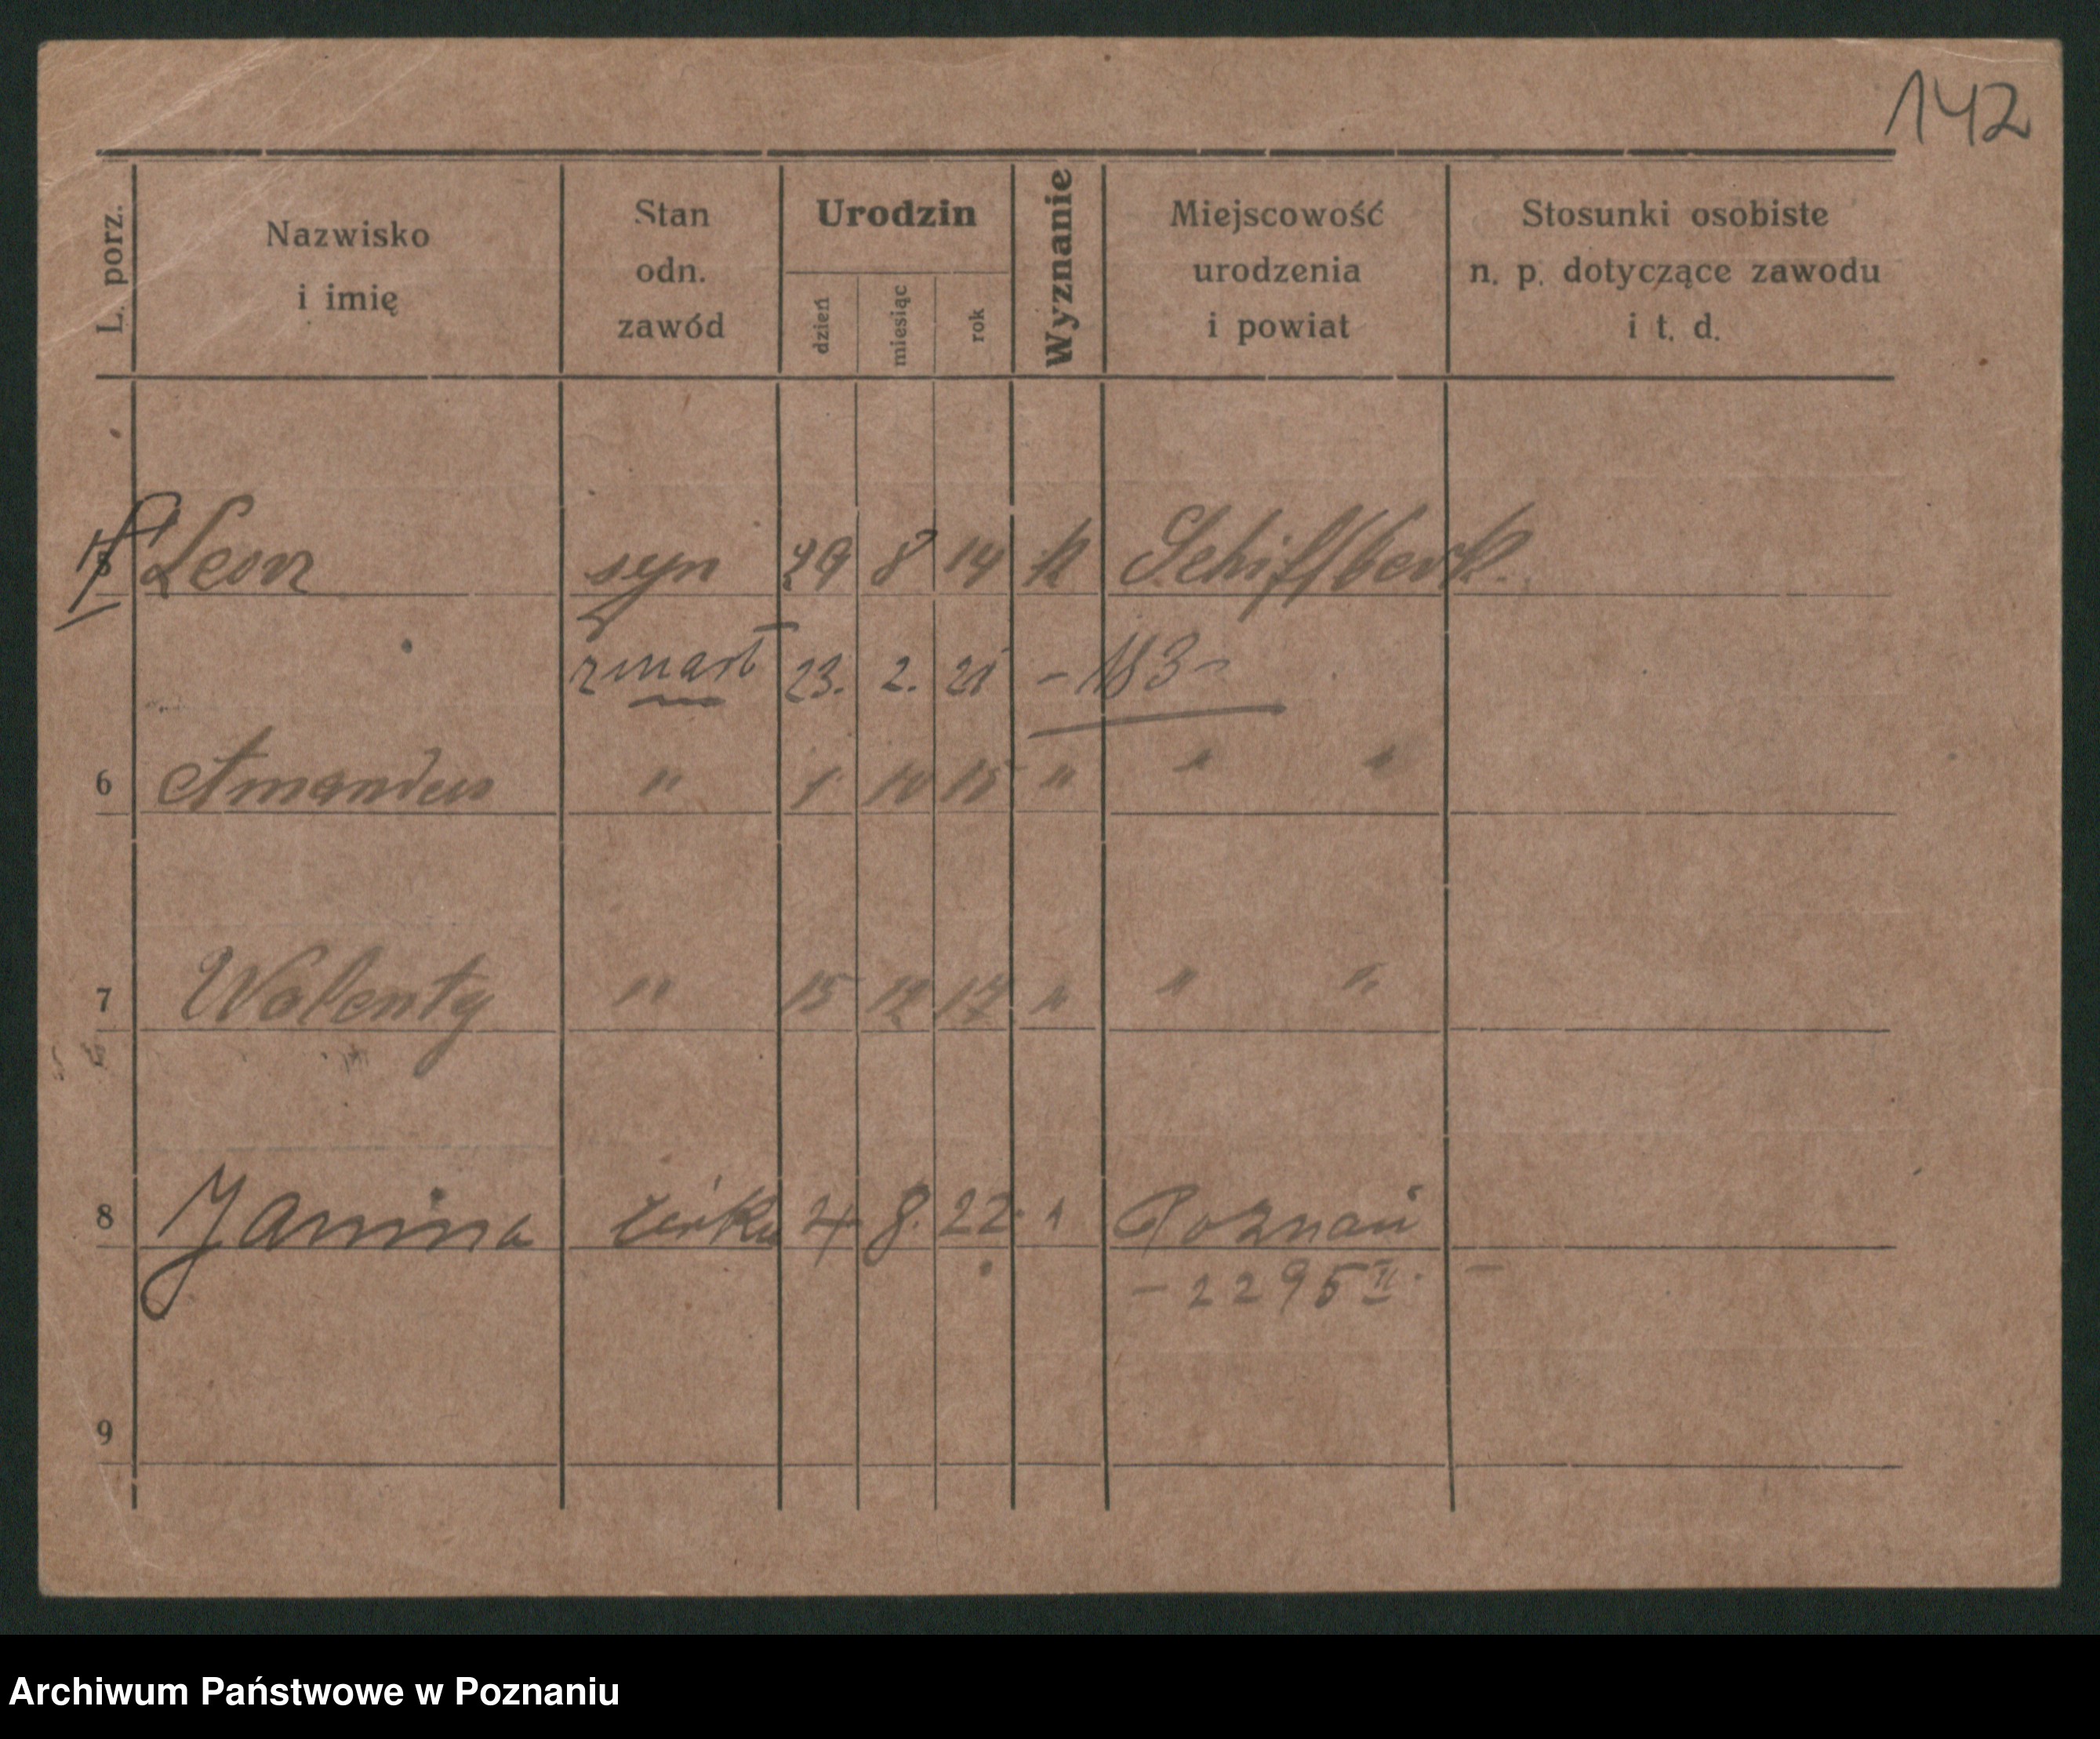 142
L. porz.
Nazwisko
i imię
Stan
odn.
zawód
Urodzin
dzień
miesiąc
rok
Wyznanie
Miejscowość
urodzenia
i powiat
Stosunki osobiste
n. p. dotyczące zawodu
i t. d.
5 Leon syn 29 8 14 k Schiffbeck.
zmarł 23. 2. 21 - 183 -
6 Amandus " 1 10 15 " " "
7 Walenty " 15 12 17 " " "
8 Janina córka 4 8. 22. Poznań
- 2295 II. -
9
Archiwum Państwowe w Poznaniu